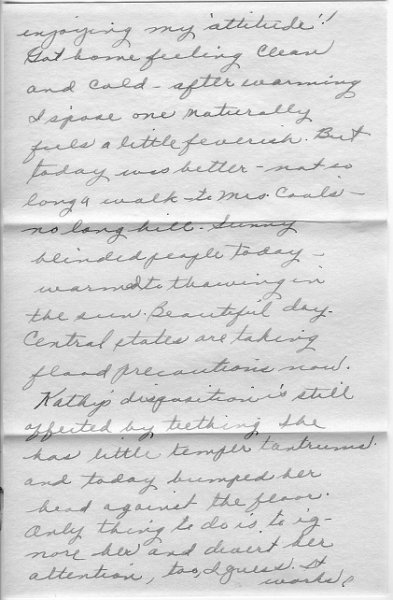 enjoying my 'attitude'!
Got home feeling clean
and cold - after warming
I s'pose one naturally
feels a little feverish. But
today was better - not so
long a walk - to Mrs. Coals -
no long hill. Sunny
blinded people today -
warmed to thawing in
the sun. Beautiful day.
Central states are taking
flood precautions now.
Kathy's disposition is still
affected by teething. She
has little temper tantrums.
and today bumped her
head against the floor.
Only thing to do is to ig-
nore her and divert her
attention, too, I guess. It
works!